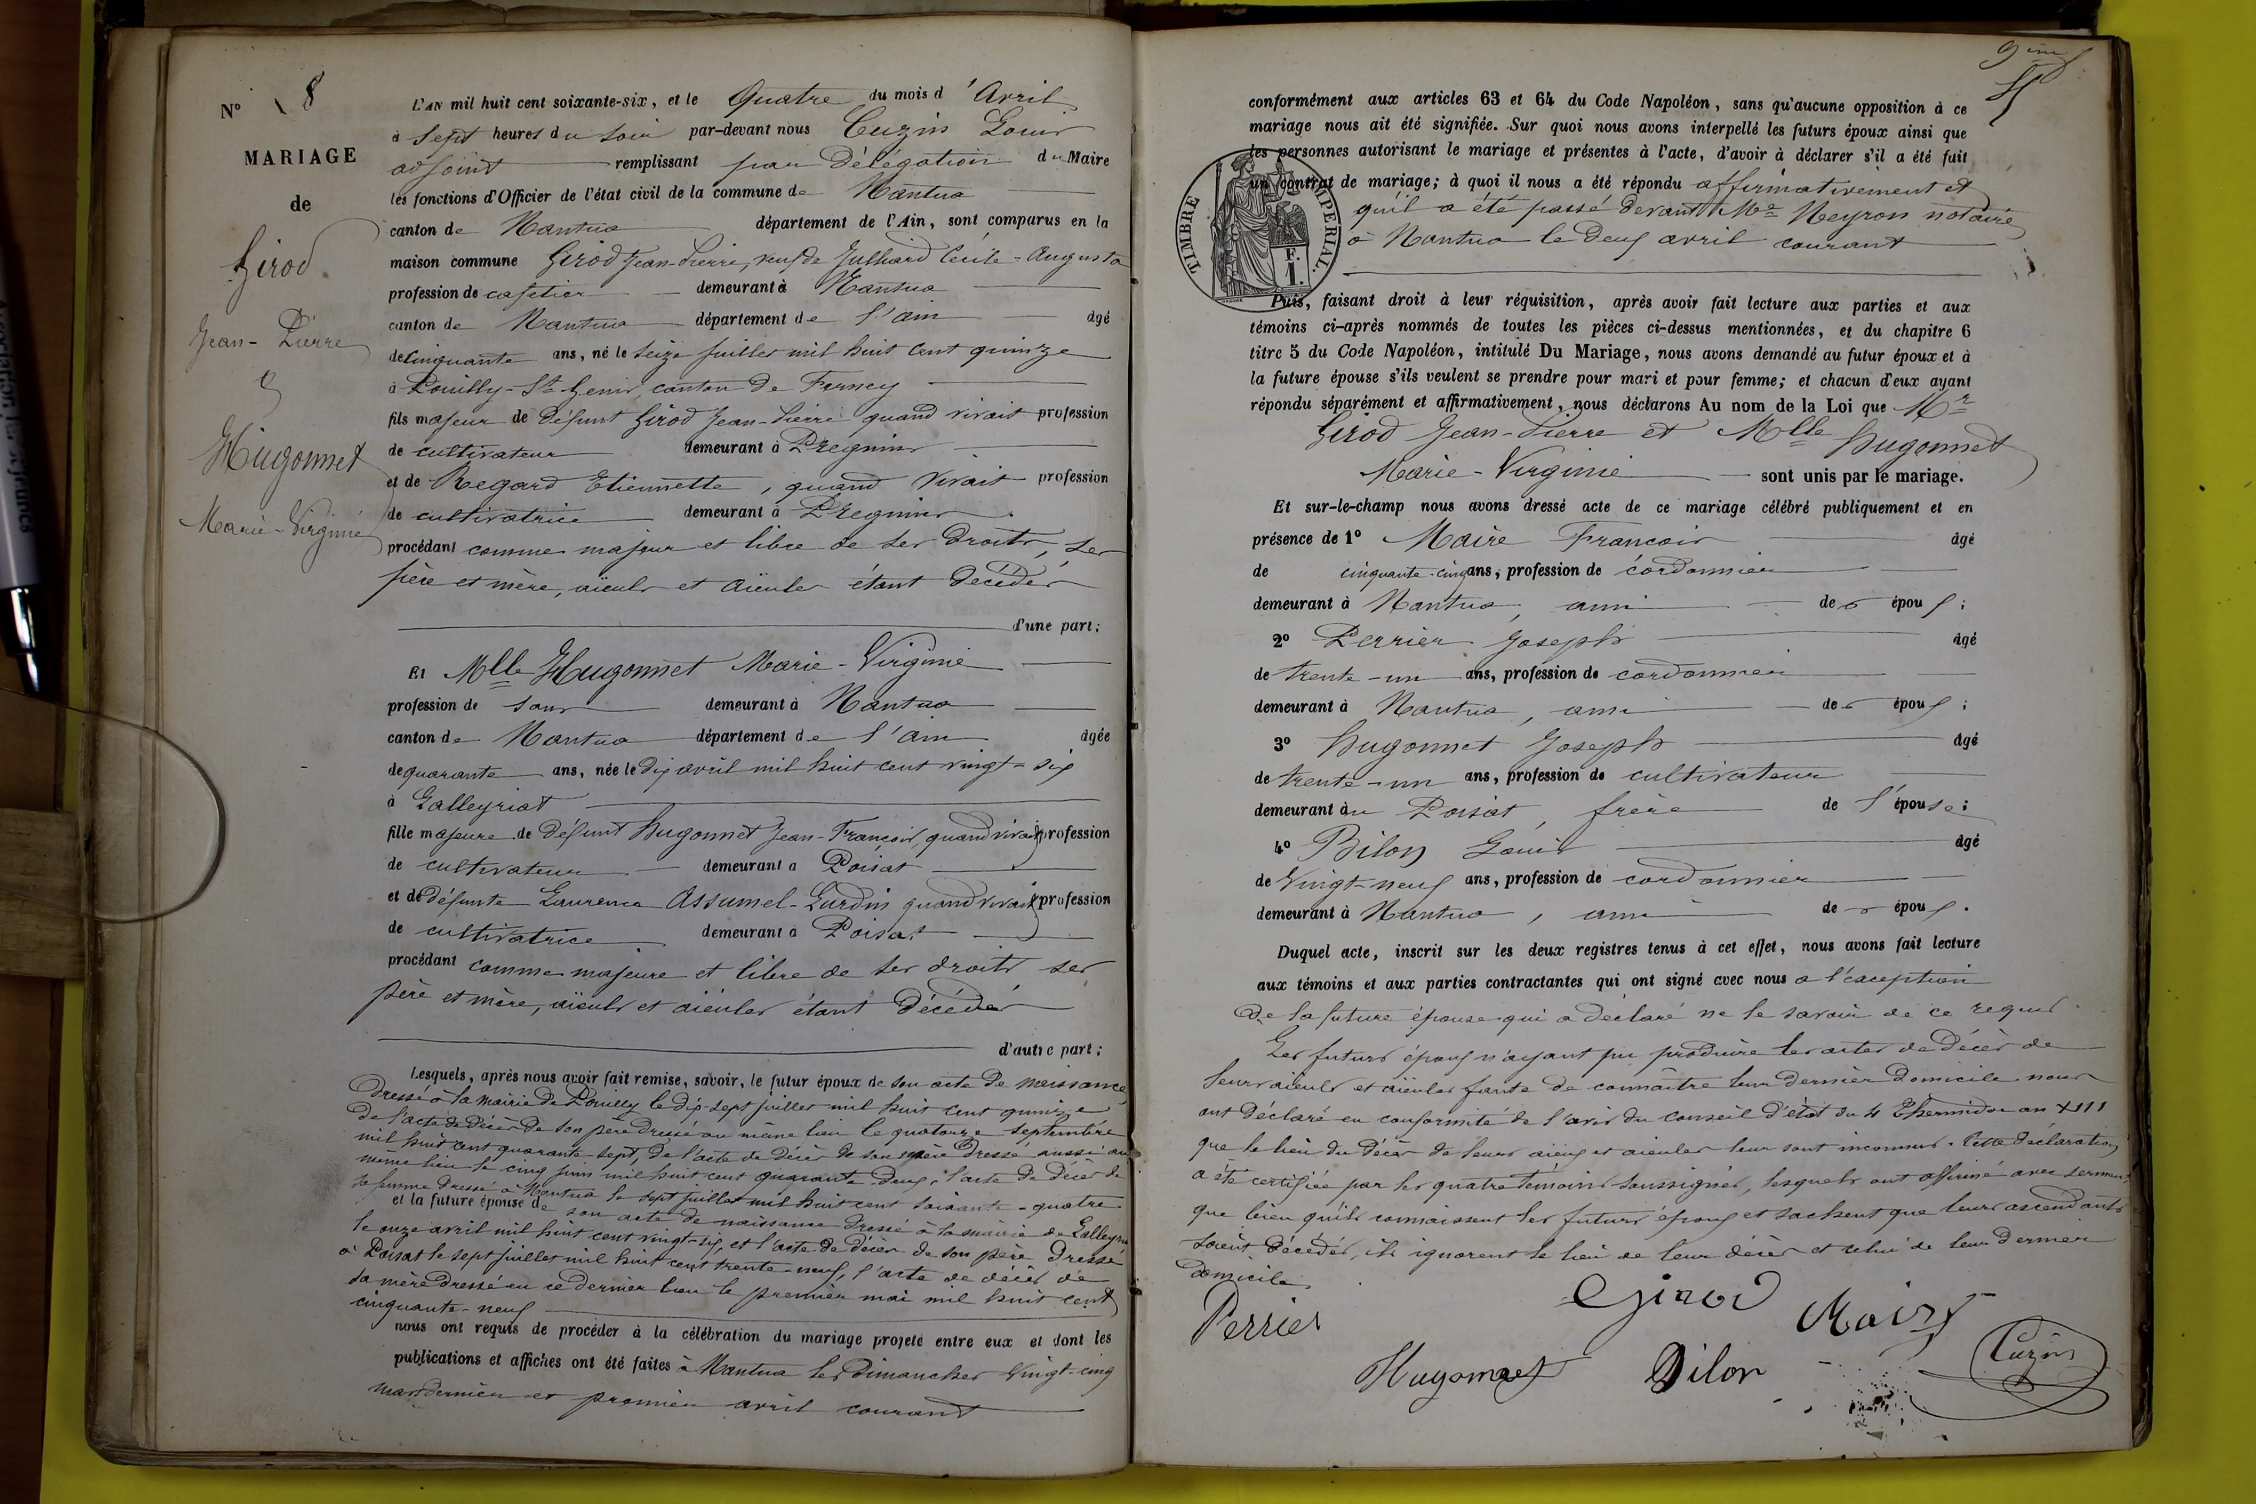 N° 18
MARIAGE
de
Girod
Jean-Pierre
&
Hugonnet
Marie-Virginie
L'AN mil huit cent soixante-six, et le Quatre du mois d'Avril
à Sept heures du soir par-devant nous Cuzin Louis
adjoint remplissant par Délégation du Maire
les fonctions d'Officier de l'état civil de la commune de Nantua
canton de Nantua département de l'Ain, sont comparus en la
maison commune Girod Jean-Pierre, veuf de Julliard Cécile-Augusta
profession de cafetier demeurant à Nantua
canton de Nantua département de l'ain âgé
de cinquante ans, né le seize juillet mil huit cent quinze
à Pouilly-St-Genis, canton de Ferney
fils majeur de défunt Girod Jean-Pierre quand vivait profession
de cultivateur demeurant à Prégnin
et de Regard Etiennette, quand vivait profession
de cultivatrice demeurant à Prégnin
procédant comme majeur et libre de ses droits, ses
père et mère, aïeuls et aïeules étant décédés
d'une part;
Et Mlle Hugonnet Marie-Virginie
profession de sans demeurant à Nantua
canton de Nantua département de l'ain âgée
de quarante ans, née le dix avril mil huit cent vingt-six
à Lalleyriat
fille majeure de défunt Hugonnet Jean-François, quand vivait profession
de cultivateur demeurant à Poisat
et de défunte Laurence Assumel-Lurdin quand vivait profession
de cultivatrice demeurant à Poisat
procédant comme majeure et libre de ses droits ses
père et mère, aïeuls et aïeules étant décédés
d'autre part;
Lesquels, après nous avoir fait remise, savoir, le futur époux de son acte de naissance
dressé à la mairie de Pouilly le dix-sept juillet mil huit cent quinze
de l'acte de décès de son père dressé au même lieu le quatorze septembre
mil huit cent quarante-sept, de l'acte de décès de son mère dressé aussi au
même lieu le cinq juin mil huit cent quarante deux, l'acte de décès de
sa femme dressé à Nantua le sept juillet mil huit cent soixante-quatre
et la future épouse de son acte de naissance dressé à la mairie de Lalleyriat
le onze avril mil huit cent vingt-six, et l'acte de décès de son père dressé
à Poisat le sept juillet mil huit cent trente-neuf, l'acte de décès de
sa mère dressé en ce dernier lieu le premier mai mil huit cent
cinquante-neuf
nous ont requis de procéder à la célébration du mariage projeté entre eux et dont les
publications et affiches ont été faites à Nantua les Dimanches vingt-cinq
mars dernier et premier avril courant
9ème
conformément aux articles 63 et 64 du Code Napoléon, sans qu'aucune opposition à ce
mariage nous ait été signifiée. Sur quoi nous avons interpellé les futurs époux ainsi que
les personnes autorisant le mariage et présentes à l'acte, d'avoir à déclarer s'il a été fait
un contrat de mariage; à quoi il nous a été répondu affirmativement et
qu'il a été passé devant Me Neyron notaire
à Nantua le deux avril courant
TIMBRE IMPERIAL.
1 F.
Puis, faisant droit à leur réquisition, après avoir fait lecture aux parties et aux
témoins ci-après nommés de toutes les pièces ci-dessus mentionnées, et du chapitre 6
titre 5 du Code Napoléon, intitulé Du Mariage, nous avons demandé au futur époux et à
la future épouse s'ils veulent se prendre pour mari et pour femme; et chacun d'eux ayant
répondu séparément et affirmativement, nous déclarons Au nom de la Loi que Mr
Girod Jean-Pierre et Mlle Hugonnet
Marie-Virginie sont unis par le mariage.
Et sur-le-champ nous avons dressé acte de ce mariage célébré publiquement et en
présence de 1° Maire François âgé
de cinquante-cinq ans, profession de cordonnier
demeurant à Nantua, ami des époux;
2° Perrier Joseph âgé
de trente-un ans, profession de cordonnier
demeurant à Nantua, ami des époux;
3° Hugonnet Joseph âgé
de trente-un ans, profession de cultivateur
demeurant au Poisat, frère de l'épouse;
4° Bilon Louis âgé
de Vingt-neuf ans, profession de cordonnier
demeurant à Nantua, ami des époux.
Duquel acte, inscrit sur les deux registres tenus à cet effet, nous avons fait lecture
aux témoins et aux parties contractantes qui ont signé avec nous à l'exception
de la future épouse qui a déclaré ne le savoir de ce requis.
Les futurs époux n'ayant pu produire les actes de décès de
leurs aïeuls et aïeules faute de connaître leur dernier domicile nous
ont déclaré en conformité de l'avis du conseil d'état du 4 Thermidor an XIII
que le lieu du décès de leurs aïeux et aïeules leur sont inconnus. Cette déclaration
a été certifiée par les quatre témoins soussignés, lesquels ont affirmé avec serment
que bien qu'ils connaissent les futurs époux et sachent que leurs ascendants
soient décédés, ils ignorent le lieu de leur décès et celui de leur dernier
domicile.
Girod
Maire
Perrier
Hugonnet
Bilon
Cuzin